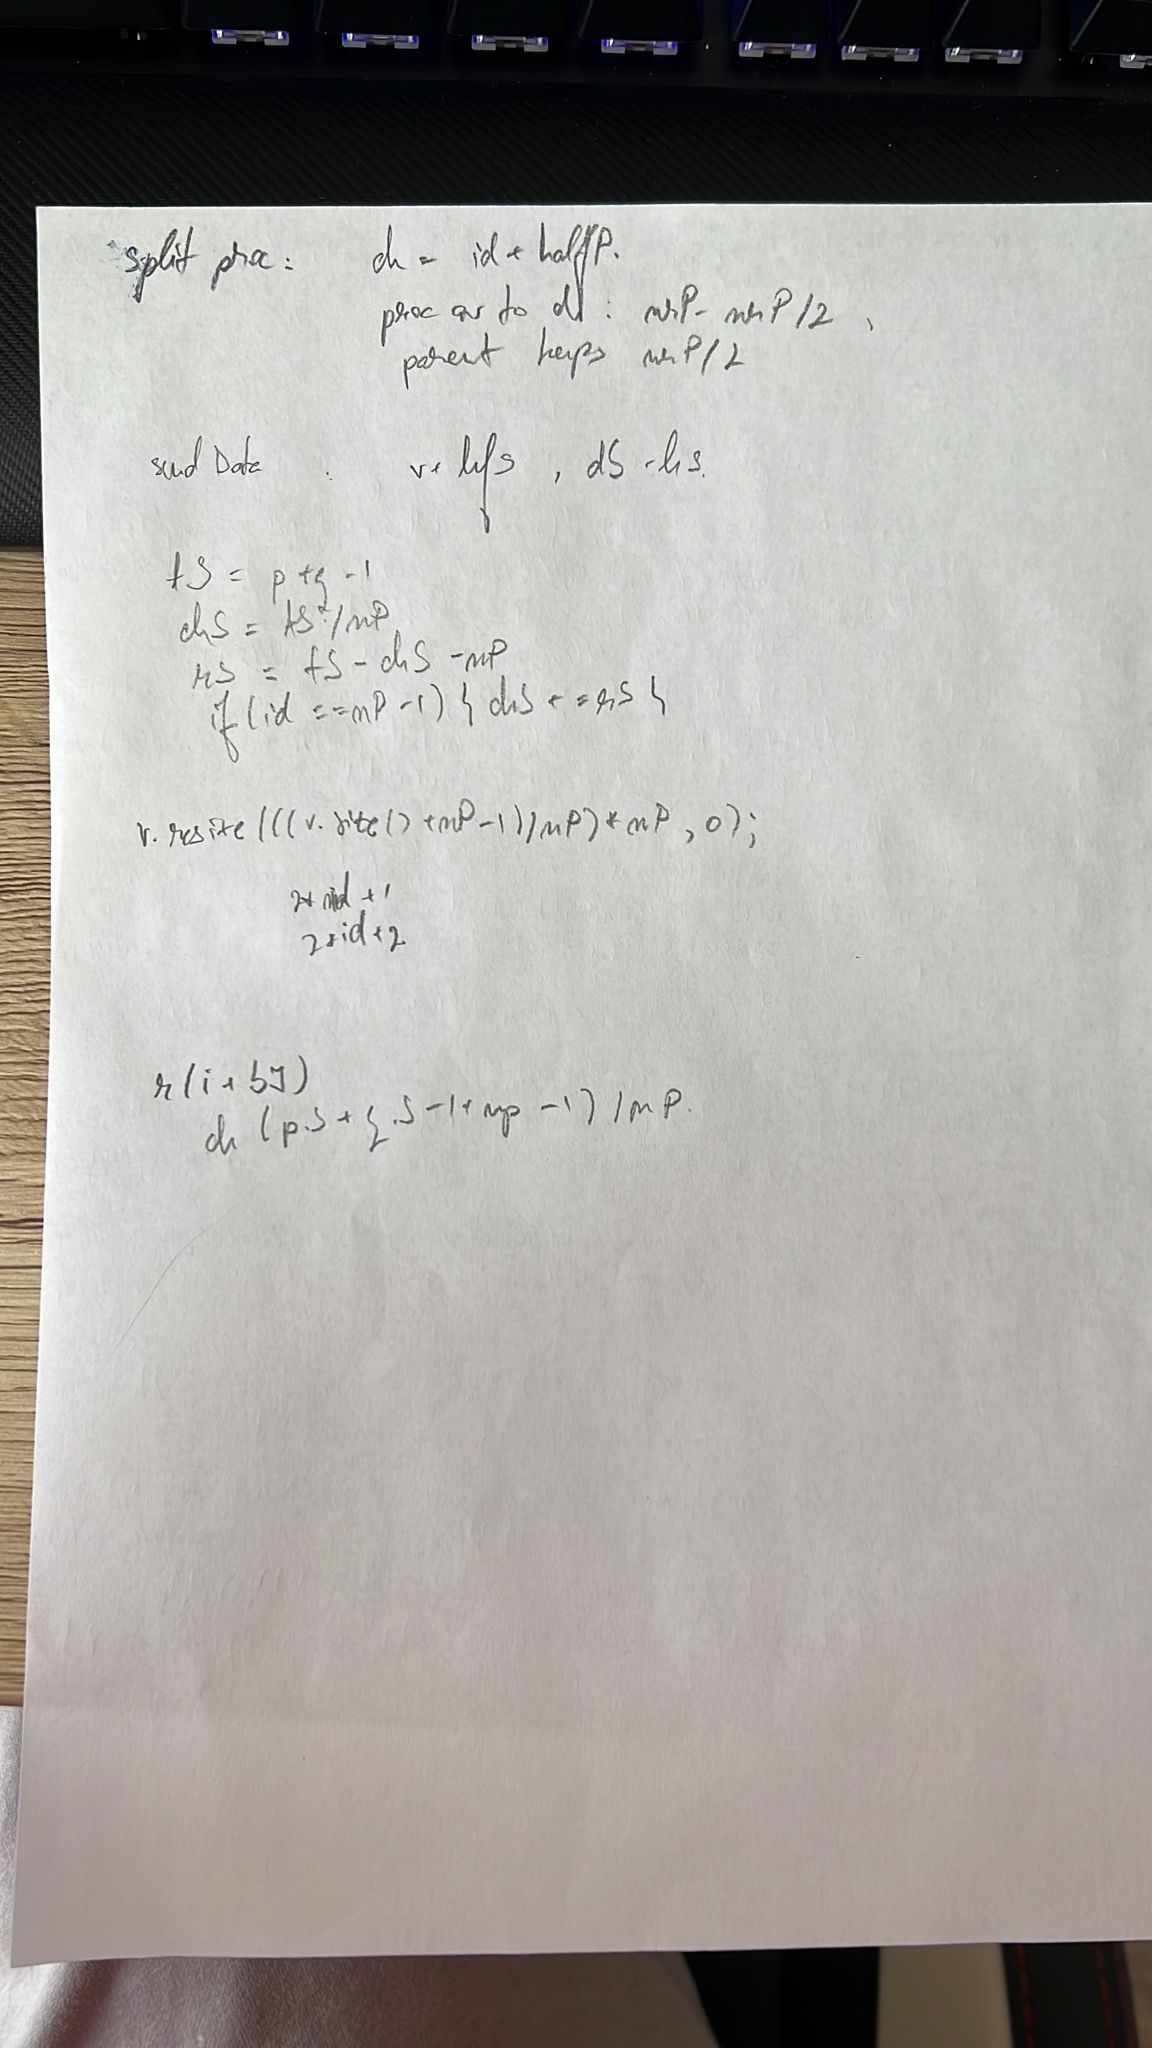 split proc: ch = id + halfP.
proc av to ch: nrP - nrP/2,
parent keeps nrP/2
send Data : v+hfS, dS-hS.
tS = p+q-1
chS = tS/nP
rS = tS - chS - nP
if(id ==nP-1) { chS + =rS }
v.resize(((v.size()+nP-1)/nP)*nP, 0);
2*id+1
2*id+2
r(i+bJ)
ch (p.S+q.S-1+np-1)/nP.